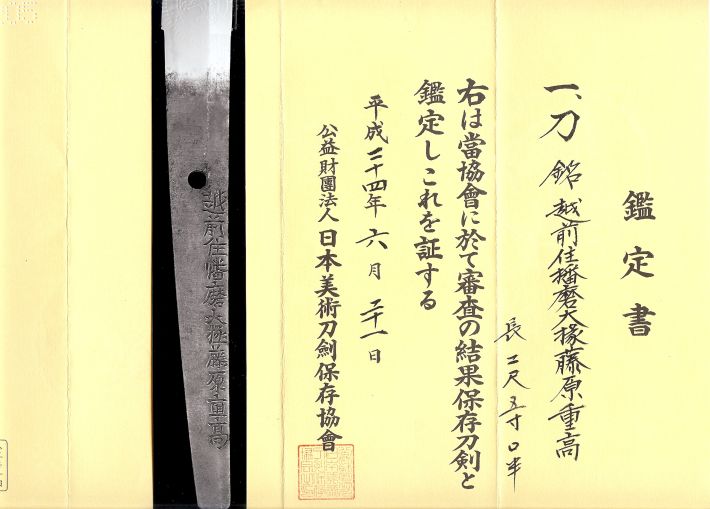 鑑定書
一、刀 銘 越前住播磨大掾藤原重高
長 二尺五寸〇半
右は當協會に於て審査の結果保存刀剣と
鑑定しこれを証する
平成二十四年六月二十一日
公益財團法人 日本美術刀劍保存協會
越前住播磨大掾藤原重高